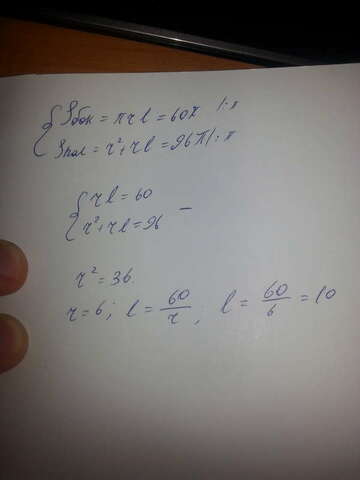 { Sбок = πrl = 60π /:π
Sпол = r²+rl = 96π /:π
{ rl = 60
r²+rl = 96 –
r² = 36.
r = 6; l = 60/r ; l = 60/6 = 10